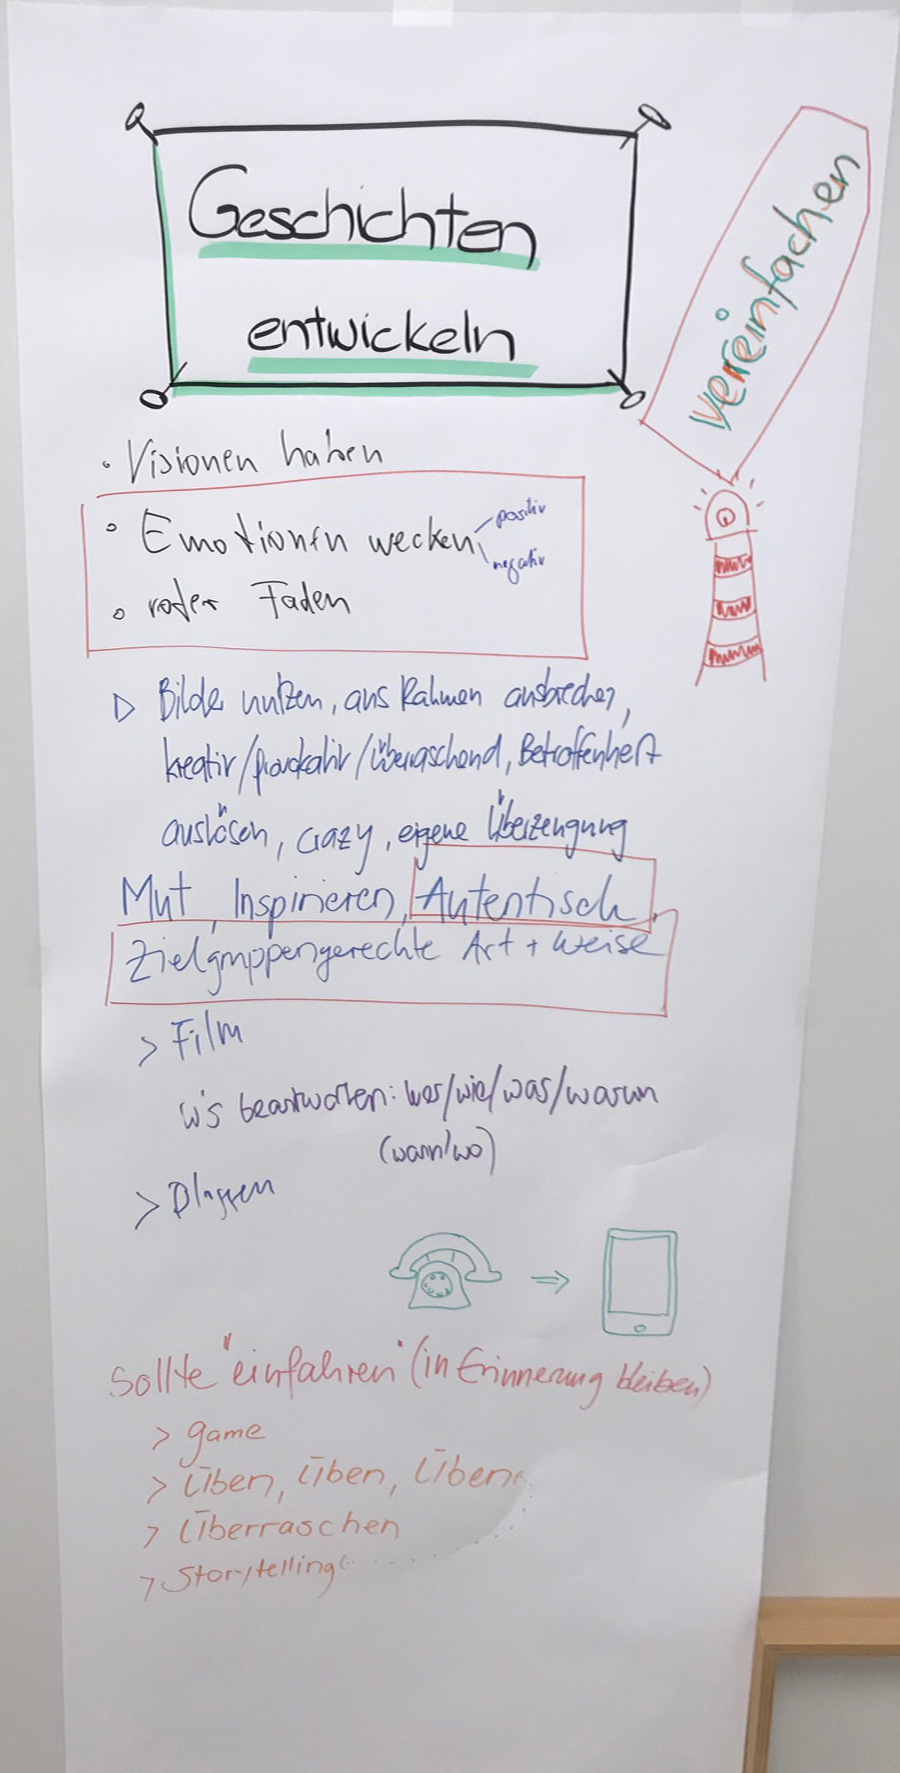 Geschichten
entwickeln
vereinfachen
• Visionen haben
• Emotionen wecken
positiv
negativ
• roter Faden
▷ Bilder nutzen, aus Rahmen ausbrechen,
kreativ/provokativ/überraschend, Betroffenheit
auslösen, crazy, eigene Überzeugung
Mut, Inspirieren, Autentisch,
Zielgruppengerechte Art + Weise
> Film
W's beantworten: wer/wie/was/warum
(wann/wo)
> Bloggen
Sollte "einfahren" (in Erinnerung bleiben)
> game
> Üben, Üben, Üben
> Überraschen
> Storytelling